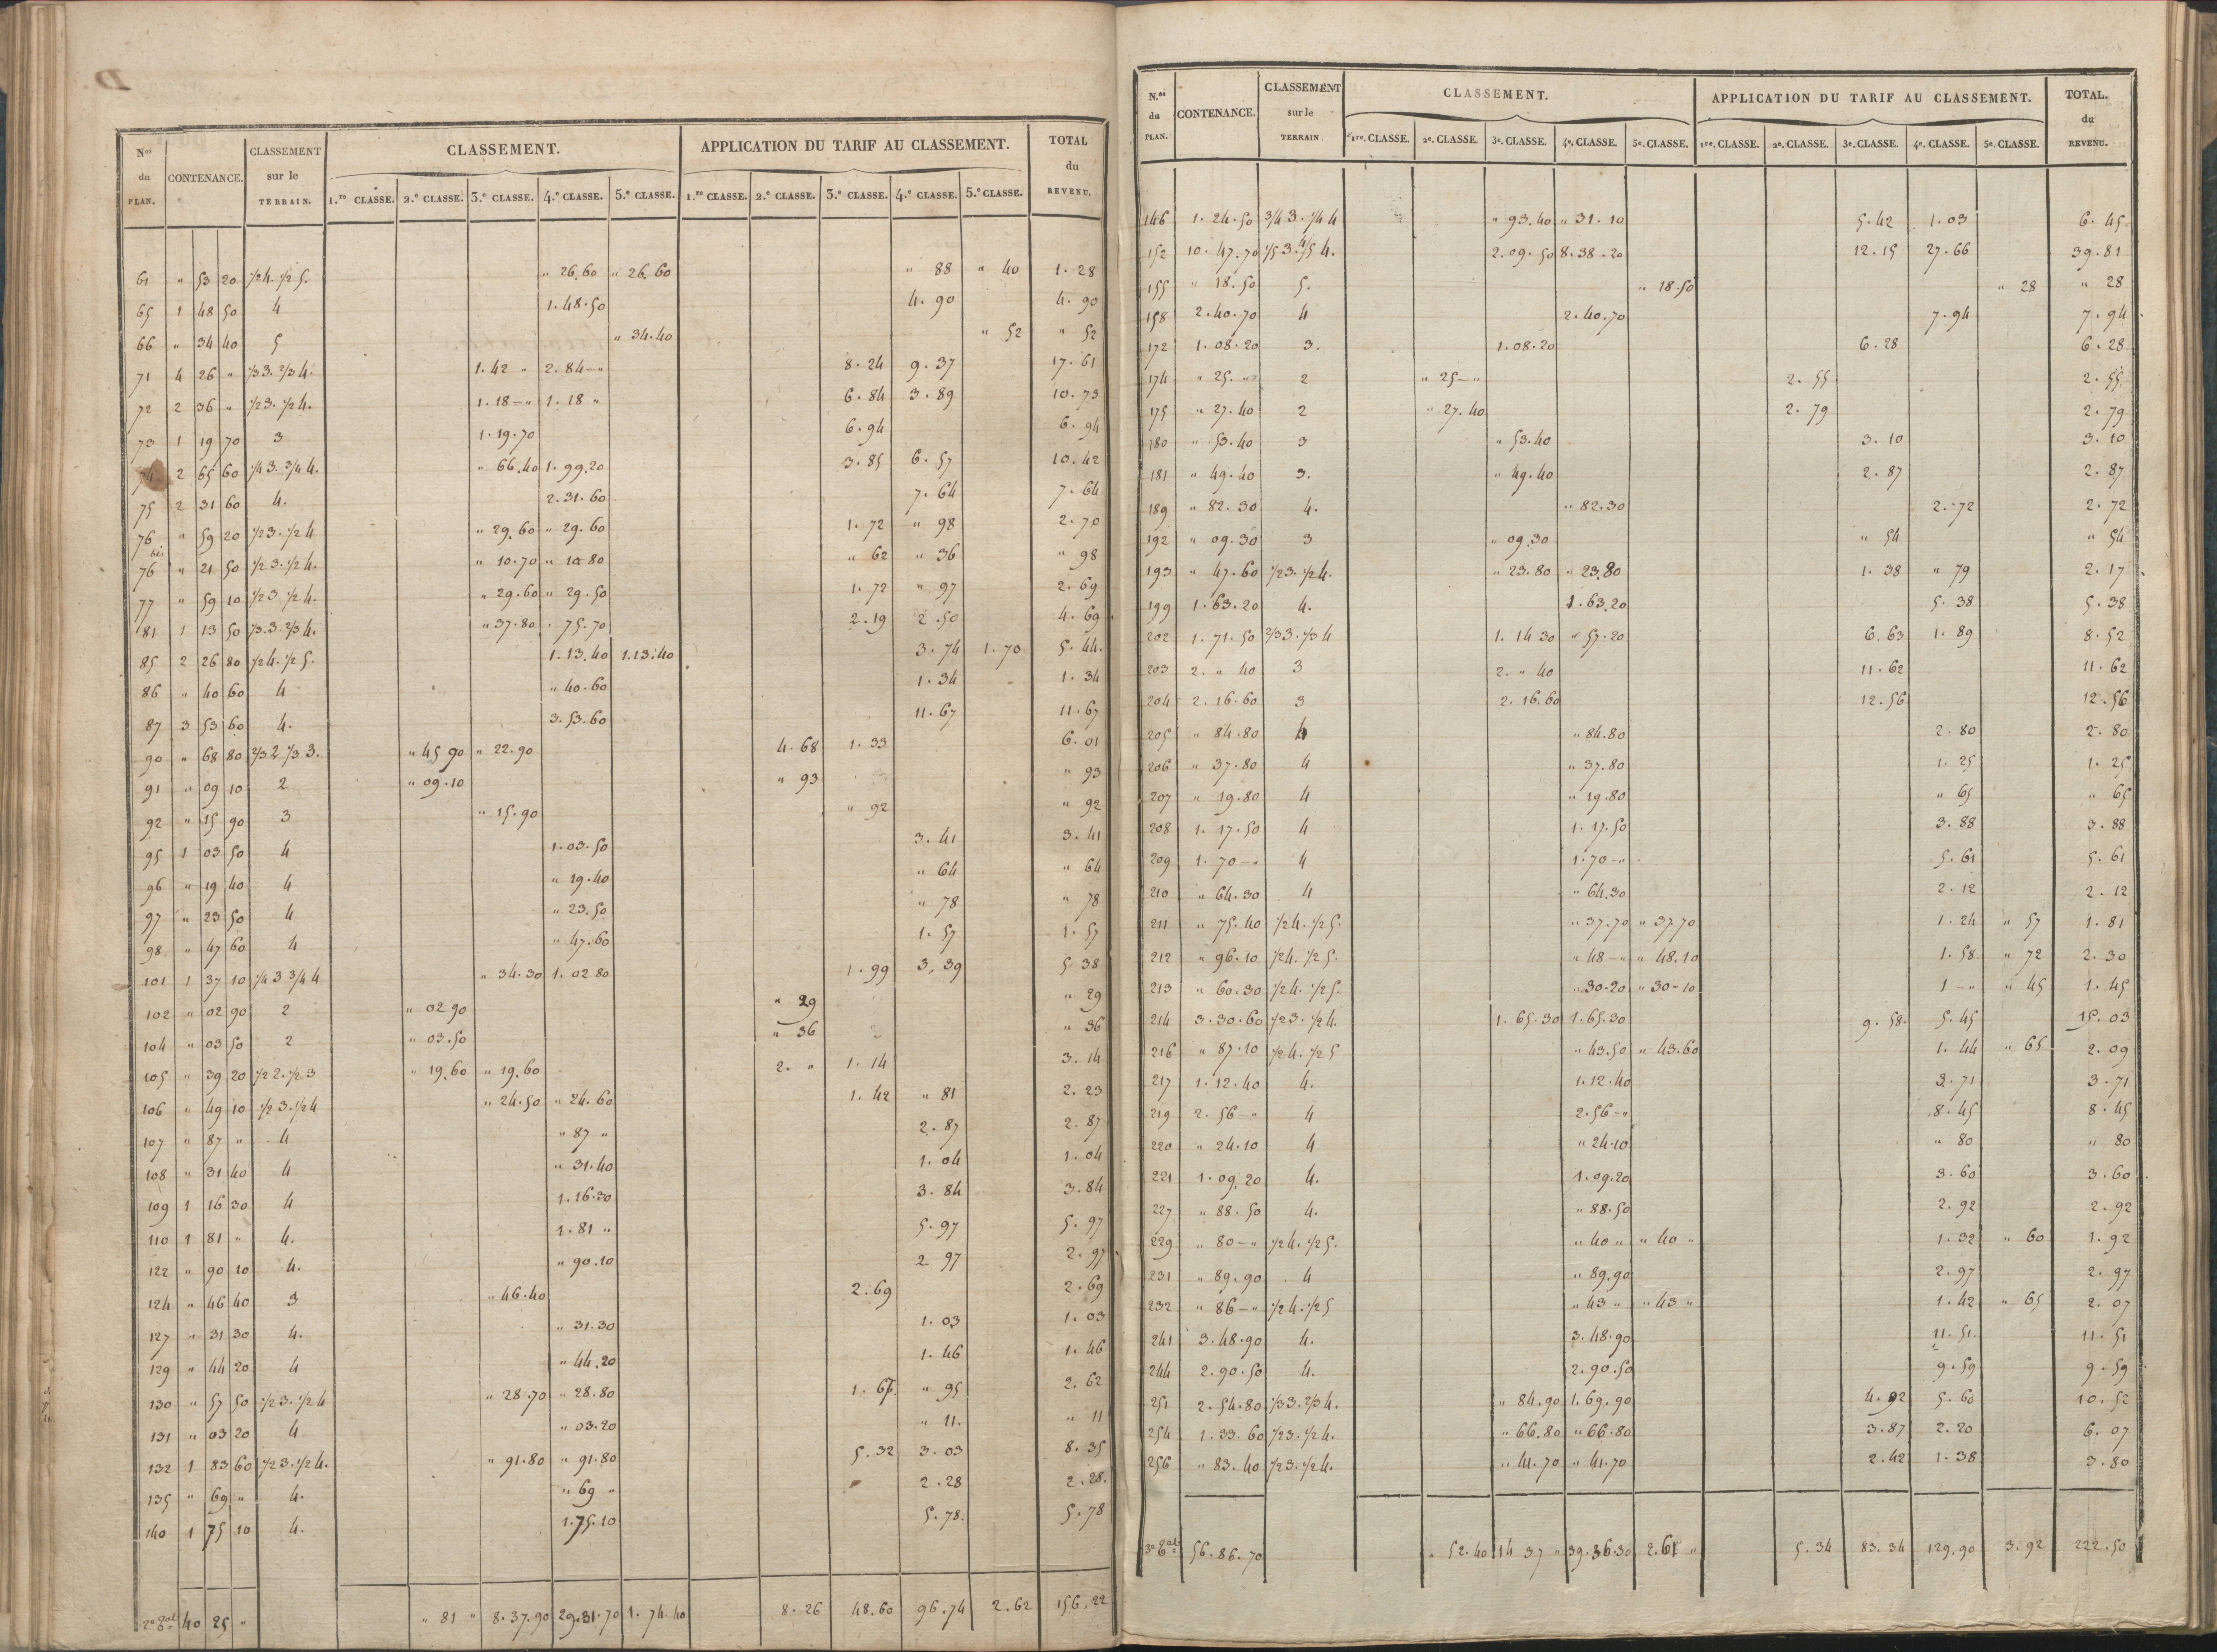 Nos du PLAN. CONTENANCE. CLASSEMENT sur le TERRAIN. CLASSEMENT. APPLICATION DU TARIF AU CLASSEMENT. TOTAL du REVENU.
1.re CLASSE. 2.e CLASSE. 3.e CLASSE. 4.e CLASSE. 5.e CLASSE. 1.re CLASSE. 2.e CLASSE. 3.e CLASSE. 4.e CLASSE. 5.e CLASSE.
61 " 53 20 1/2 4. 1/2 5. " 26.60 " 26.60 " 88 " 40 1. 28
65 1 48 50 4 1.48.50 4. 90 4. 90
66 " 34 40 5 " 34.40 " 52 " 52
71 4 26 " 1/3 3. 2/3 4. 1.42 " 2.84 - " 8. 24 9. 37 17. 61
72 2 36 " 1/2 3. 1/2 4. 1.18 - " 1.18 " 6. 84 3. 89 10. 73
73 1 19 70 3 1.19.70 6. 94 6. 94
74 2 65 60 1/4 3. 3/4 4. " 66.40 1.99.20 3. 85 6. 57 10. 42
75 2 31 60 4. 2.31.60 7. 64 7. 64
76 " 59 20 1/2 3. 1/2 4 " 29.60 " 29.60 1. 72 " 98 2. 70
76 bis " 21 50 1/2 3. 1/2 4. " 10.70 " 10 80 " 62 " 36 " 98
77 " 59 10 1/2 3 1/2 4. " 29.60 " 29.50 1. 72 " 97 2. 69
81 1 13 50 1/3. 3. 2/3 4. " 37.80 . 75.70 2. 19 2. 50 4. 69
85 2 26 80 1/2 4. 1/2 5. 1.13.40 1.13.40 3. 74 1. 70 5. 44.
86 " 40 60 4 " 40.60 1. 34 1. 34
87 3 53 60 4. 3.53.60 11. 67 11. 67
90 " 68 80 2/3 2 1/3 3. " 45 90 " 22.90 4. 68 1. 33 6. 01
91 " 09 10 2 " 09.10 " 93 " 93
92 " 15 90 3 " 15.90 " 92 " 92
95 1 03 50 4 1.03.50 3. 41 3. 41
96 " 19 40 4 " 19.40 " 64 " 64
97 " 23 50 4 " 23.50 " 78 " 78
98 " 47 60 4 " 47.60 1. 57 1. 57
101 1 37 10 1/4 3 3/4 4 " 34.30 1. 02 80 1. 99 3. 39 5 38
102 " 02 90 2 " 02 90 " 29 " 29
104 " 03 50 2 " 03.50 " 36 " 36
105 " 39 20 1/2 2. 1/2 3 " 19.60 " 19.60 2. " 1. 14 3. 14
106 " 49 10 1/2 3. 1/2 4 " 24.50 " 24.60 1. 42 " 81 2. 23
107 " 87 " 4 " 87 " 2. 87 2. 87
108 " 31 40 4 " 31.40 1. 04 1. 04
109 1 16 30 4 1.16.30 3. 84 3. 84
110 1 81 " 4. 1.81 " 5. 97 5. 97
122 " 90 10 4. " 90.10 2 97 2. 97
124 " 46 40 3 " 46.40 2. 69 2. 69
127 " 31 30 4. " 31.30 1. 03 1. 03
129 " 44 20 4 " 44.20 1. 46 1. 46
130 " 57 50 1/2 3. 1/2 4 " 28.70 " 28.80 1. 67. " 95 2. 62
131 " 03 20 4 " 03.20 " 11. " 11
132 1 83 60 1/2 3. 1/2 4. " 91.80 " 91.80 5. 32 3. 03 8. 35
135 " 69 " 4. " 69 " 2. 28 2. 28.
140 1 75 10 4. 1.75.10 5. 78. 5. 78
40 25 " " 81 " 8.37.90 29.31.70 1. 74.40 8. 26 48.60 96.74 2. 62 156.22
N.os du PLAN. CONTENANCE. CLASSEMENT sur le TERRAIN CLASSEMENT. APPLICATION DU TARIF AU CLASSEMENT. TOTAL. du REVENU.
1re. CLASSE. 2e. CLASSE. 3e. CLASSE. 4e. CLASSE. 5e. CLASSE. 1re. CLASSE. 2e. CLASSE. 3e. CLASSE. 4e. CLASSE. 5e. CLASSE.
146 1. 24.50 3/4 3. 1/4 4 " 93.40 " 31.10 5. 42 1. 03 6. 45.
152 10. 47.70 1/5 3. 4/5 4. 2.09.50 8.38.20 12. 15 27. 66 39. 81
155 " 18.50 5. " 18.50 " 28 " 28
158 2.40.70 4 2.40.70 7. 94 7. 94
172 1.08.20 3. 1.08.20 6. 28 6. 28
174 " 25. " 2 " 25 - " 2. 55 2. 55
175 " 27.40 2 " 27.40 2. 79 2. 79
180 " 53.40 3 " 53.40 3. 10 3. 10
181 " 49.40 3. " 49.40 2. 87 2. 87
189 " 82.30 4. " 82.30 2. 72 2. 72
192 " 09.30 3 " 09.30 " 54 " 54
193 " 47.60 1/2 3. 1/2 4. " 23.80 " 23.80 1. 38 " 79 2. 17
199 1.63.20 4. 1.63.20 5. 38 5. 38
202 1.71.50 2/3 3. 1/3 4 1. 14 30 " 57.20 6. 63 1. 89 8. 52
203 2. " 40 3 2. " 40 11. 62 11. 62
204 2.16.60 3 2.16.60 12. 56 12. 56
205 " 84.80 4 " 84.80 2. 80 2. 80
206 " 37.80 4 " 37.80 1. 25 1. 25
207 " 19.80 4 " 19.80 " 65 " 65
208 1. 17.50 4 1.17.50 3. 88 3. 88
209 1. 70 - " 4 1.70 - " 5. 61 5. 61
210 " 64.30 4 " 64.30 2. 12 2. 12
211 " 75.40 1/2 4. 1/2 5. " 37.70 " 37.70 1. 24 " 57 1. 81
212 " 96.10 1/2 4. 1/2 5. " 48 - " " 48.10 1. 58. " 72 2. 30
213 " 60.30 1/2 4. 1/2 5. " 30-20 " 30-10 1 - " " 45 1. 45
214 3.30.60 1/2 3. 1/2 4. 1. 65.30 1.65.30 9. 58. 5. 45 15. 03
216 " 87.10 1/2 4. 1/2 5 " 43.50 " 43.60 1. 44 " 65 2. 09
217 1.12.40 4. 1.12.40 3. 71 3. 71
219 2. 56 - " 4 2.56 - " 8. 45 8. 45
220 " 24.10 4 " 24.10 " 80 " 80
221 1.09.20 4. 1.09.20 3. 60 3. 60
227 " 88.50 4. " 88.50 2. 92 2. 92
229 " 80 - " 1/2 4. 1/2 5. " 40 " " 40 " 1. 32 " 60 1. 92
231 " 89.90 4 " 89.90 2. 97 2. 97
232 " 86 - " 1/2 4. 1/2 5 " 43 " " 43 " 1. 42 " 65 2. 07
241 3.48.90 4. 3.48.90 11. 51. 11. 51
244 2.90.50 4. 2.90.50 9. 59 9. 59
251 2.54.80 1/3 3. 2/3 4. " 84.90 1.69.90 4. 92 5. 60 10. 52
254 1.33.60 1/2 3. 1/2 4. " 66.80 " 66.80 3.87 2. 20 6. 07
256 " 83.40 1/2 3. 1/2 4. " 41.70 " 41.70 2.42 1. 38 3. 80
56.86.70 " 52.40 14 37 " 39.36.30 2.61 " 5. 34 83. 34 129.90 3. 92 222.50